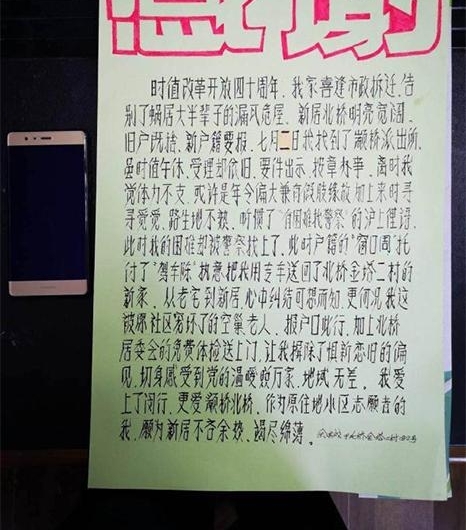 感谢
时值改革开放四十周年、我家喜逢市政拆迁、告
别了蜗居大半辈子的漏风危屋、新居北桥明亮宽阔、
旧户既拴、新户籍要报、七月二日我找到了颛桥派出所、
虽时值午休、受理却依旧、要件出示、报章林争、离时我
觉体力不支、或许是年令偏大兼有凝胶缘故加上来时寻
寻觉觉、路生地不熟、听惯了"有困难找警察"的沪上俚语、
此时我的困难却被警察找上了、此时户籍的"窗口周"托
付了"驾车陈"执意把我用专车送回了北桥金塔二村的
新家、从老宅到新居、心中纠结可想而知、更何况我这
被原社区宠坏了的空巢老人、报户口此行、加上北桥
居委会的免费体检送上门、让我摒除了惧新恋旧的偏
见、切身感受到党的温暖贻万家、地域无差。我爱
上了闵行、更爱颛桥北桥、作为原住地小区志愿者的
我、愿为新居不吝余热、竭尽绵薄。